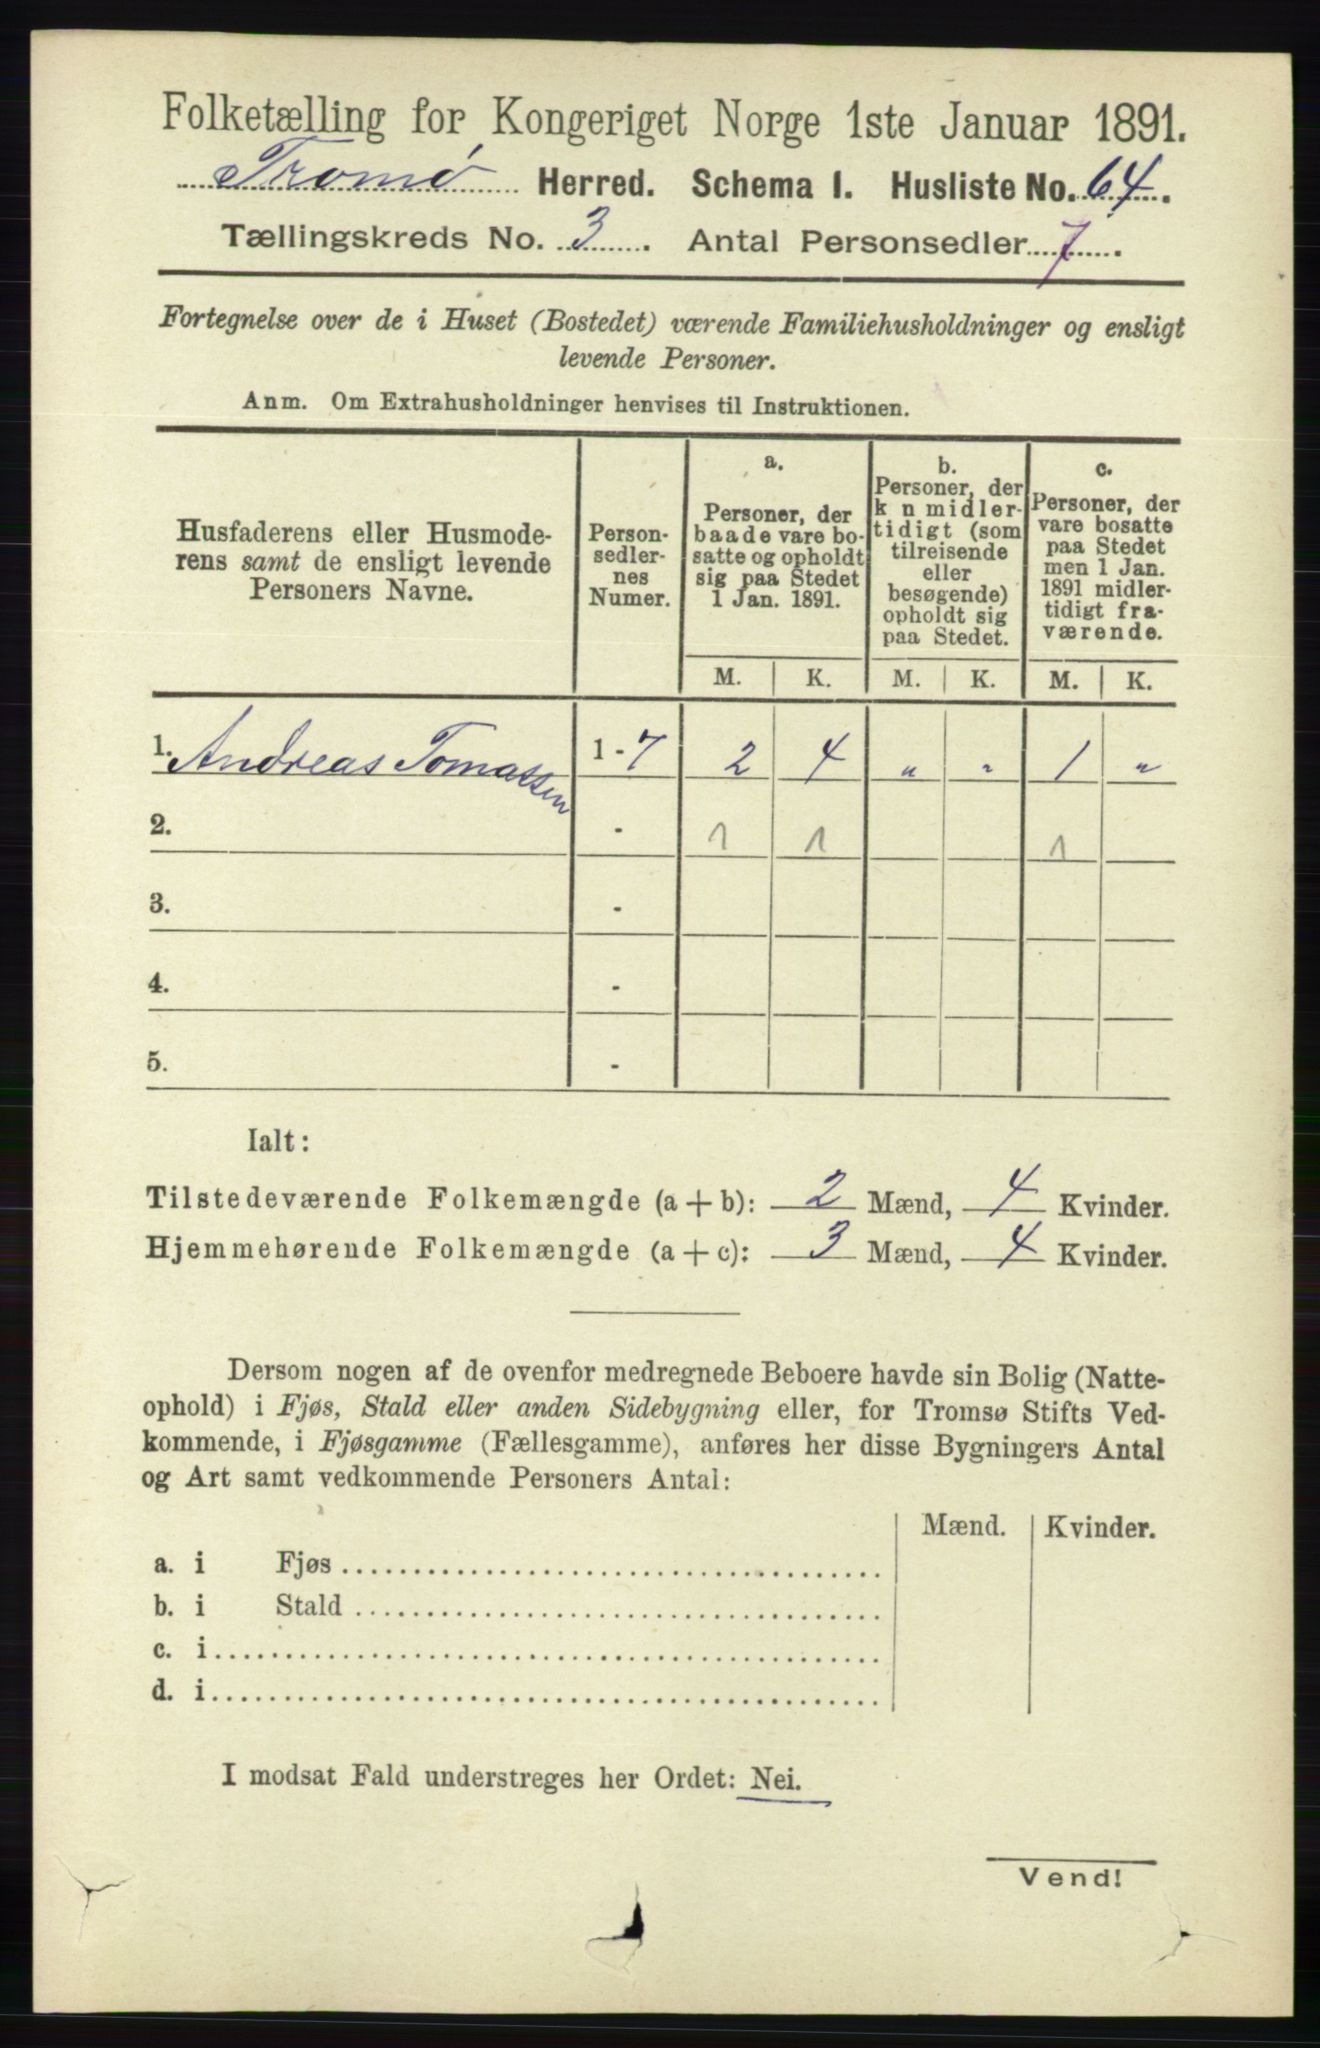 Folketælling for Kongeriget Norge 1ste Januar 1891.
Tromø Herred. Schema I. Husliste No. 64.
Tællingskreds No. 3. Antal Personsedler 7.
Fortegnelse over de i Huset (Bostedet) værende Familiehusholdninger og ensligt
levende Personer.
Anm. Om Extrahusholdninger henvises til Instruktionen.
Husfaderens eller Husmode-
rens samt de ensligt levende
Personers Navne.
Person-
sedler-
nes
Numer.
a.
Personer, der
baade vare bo-
satte og opholdt
sig paa Stedet
1 Jan. 1891.
b.
Personer, der
k n midler-
tidigt (som
tilreisende
eller
besøgende)
opholdt sig
paa Stedet.
c.
Personer, der
vare bosatte
paa Stedet
men 1 Jan.
1891 midler-
tidigt fra-
værende.
M. K. M. K. M. K.
1. Andreas Tomassen 1-7 2 4 „ „ 1 „
2. - 1 1 1
3. -
4. -
5. -
Ialt:
Tilstedeværende Folkemængde (a + b): 2 Mænd, 4 Kvinder.
Hjemmehørende Folkemængde (a + c): 3 Mænd, 4 Kvinder.
Dersom nogen af de ovenfor medregnede Beboere havde sin Bolig (Natte-
ophold) i Fjøs, Stald eller anden Sidebygning eller, for Tromsø Stifts Ved-
kommende, i Fjøsgamme (Fællesgamme), anføres her disse Bygningers Antal
og Art samt vedkommende Personers Antal:
Mænd. Kvinder.
a. i Fjøs
b. i Stald
c. i
d. i
I modsat Fald understreges her Ordet: Nei.
Vend!